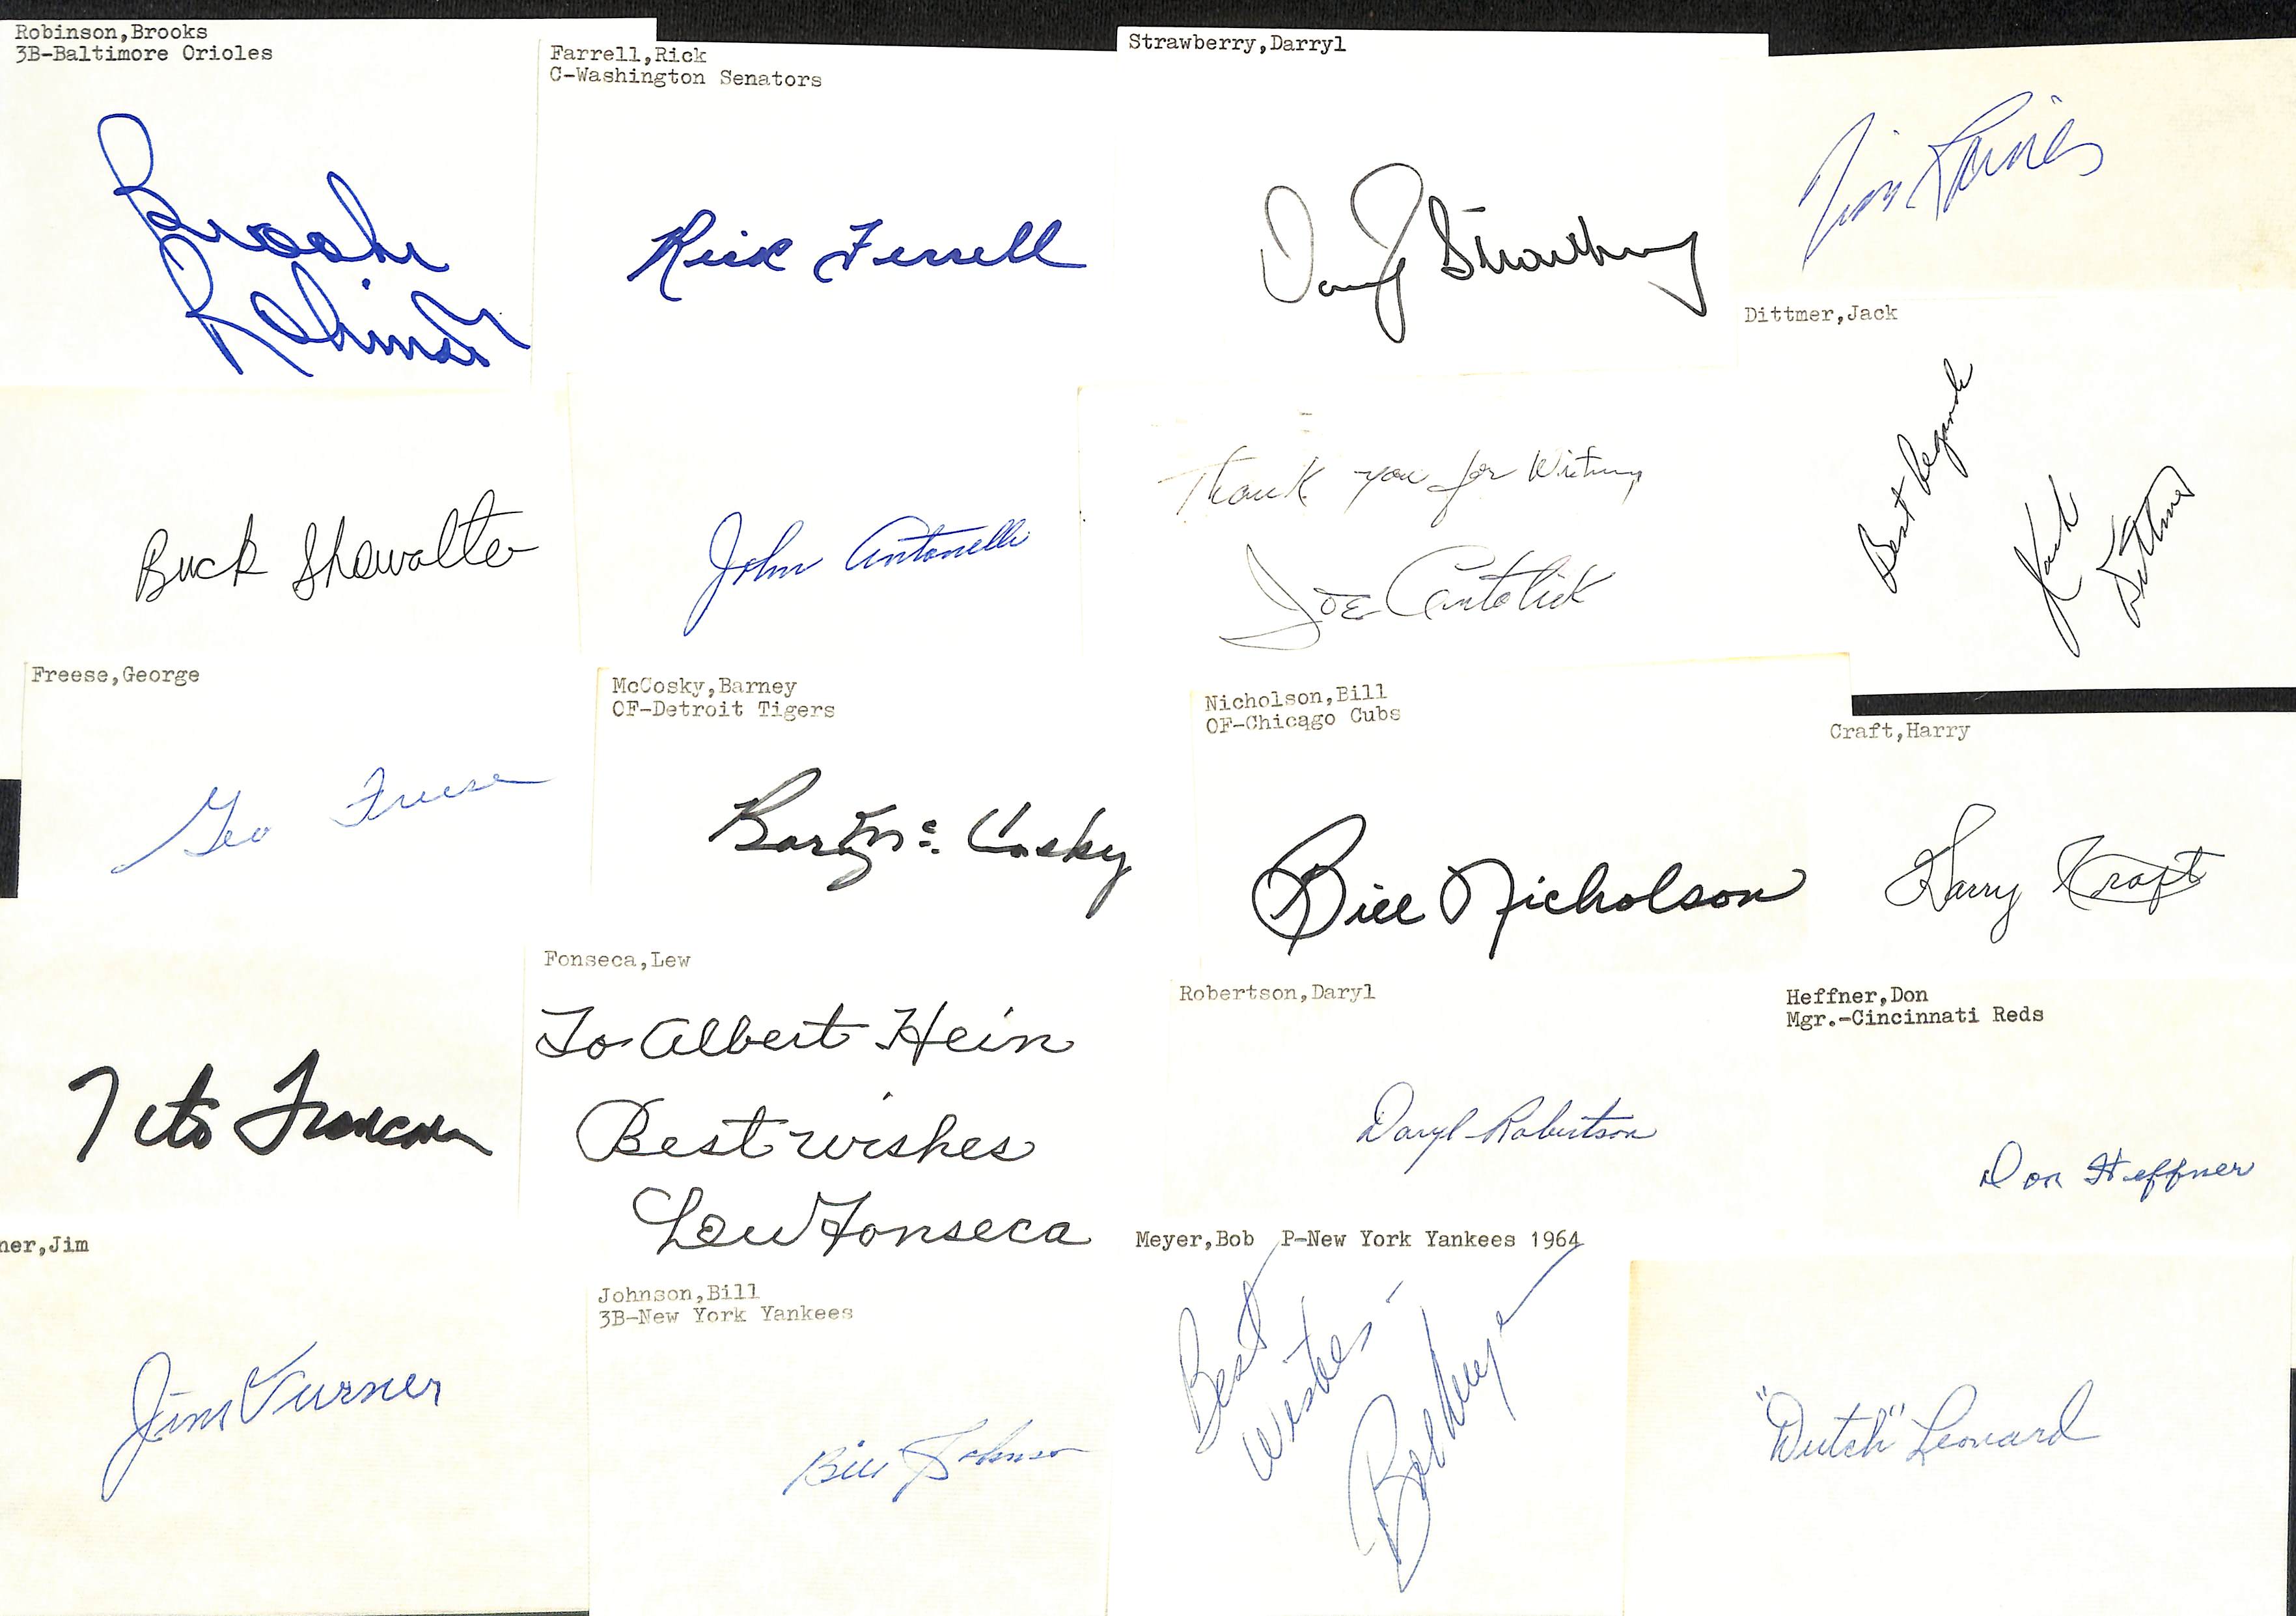 Robinson,Brooks
3B-Baltimore Orioles
Brooks
Robinson
Farrell,Rick
C-Washington Senators
Rick Ferrell
Strawberry,Darryl
Darryl Strawberry
Tim Raines
Buck Showalter
John Antonelli
Thank you for Writing
Joe
Dittmer,Jack
Best Regards
Jack
Dittmer
Freese,George
Geo Freese
McCosky,Barney
OF-Detroit Tigers
Barney Mc Cosky
Nicholson,Bill
OF-Chicago Cubs
Bill Nicholson
Craft,Harry
Harry Craft
Tito Francona
Fonseca,Lew
To Albert Hein
Best wishes
Lew Fonseca
Robertson,Daryl
Daryl Robertson
Heffner,Don
Mgr.-Cincinnati Reds
Don Heffner
ner,Jim
Jim Turner
Johnson,Bill
3B-New York Yankees
Bill Johnson
Meyer,Bob P-New York Yankees 1964
Best
Wishes
Bob Meyer
"Dutch" Leonard